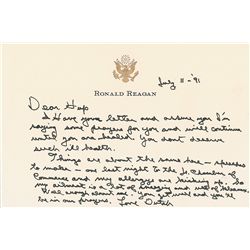 RONALD REAGAN
July 11 - '91
Dear Hup
I have your letter and assure you I'm
saying some prayers for you and will continue
until you are healed. You don't deserve
such ill health.
Things are about the same here - speeches
to make - one last night to the Chamber of
Commerce and my allergies are kicking up.
is a lot of sneezing and
about me. You get well and you'll
be in our prayers. Love Dutch